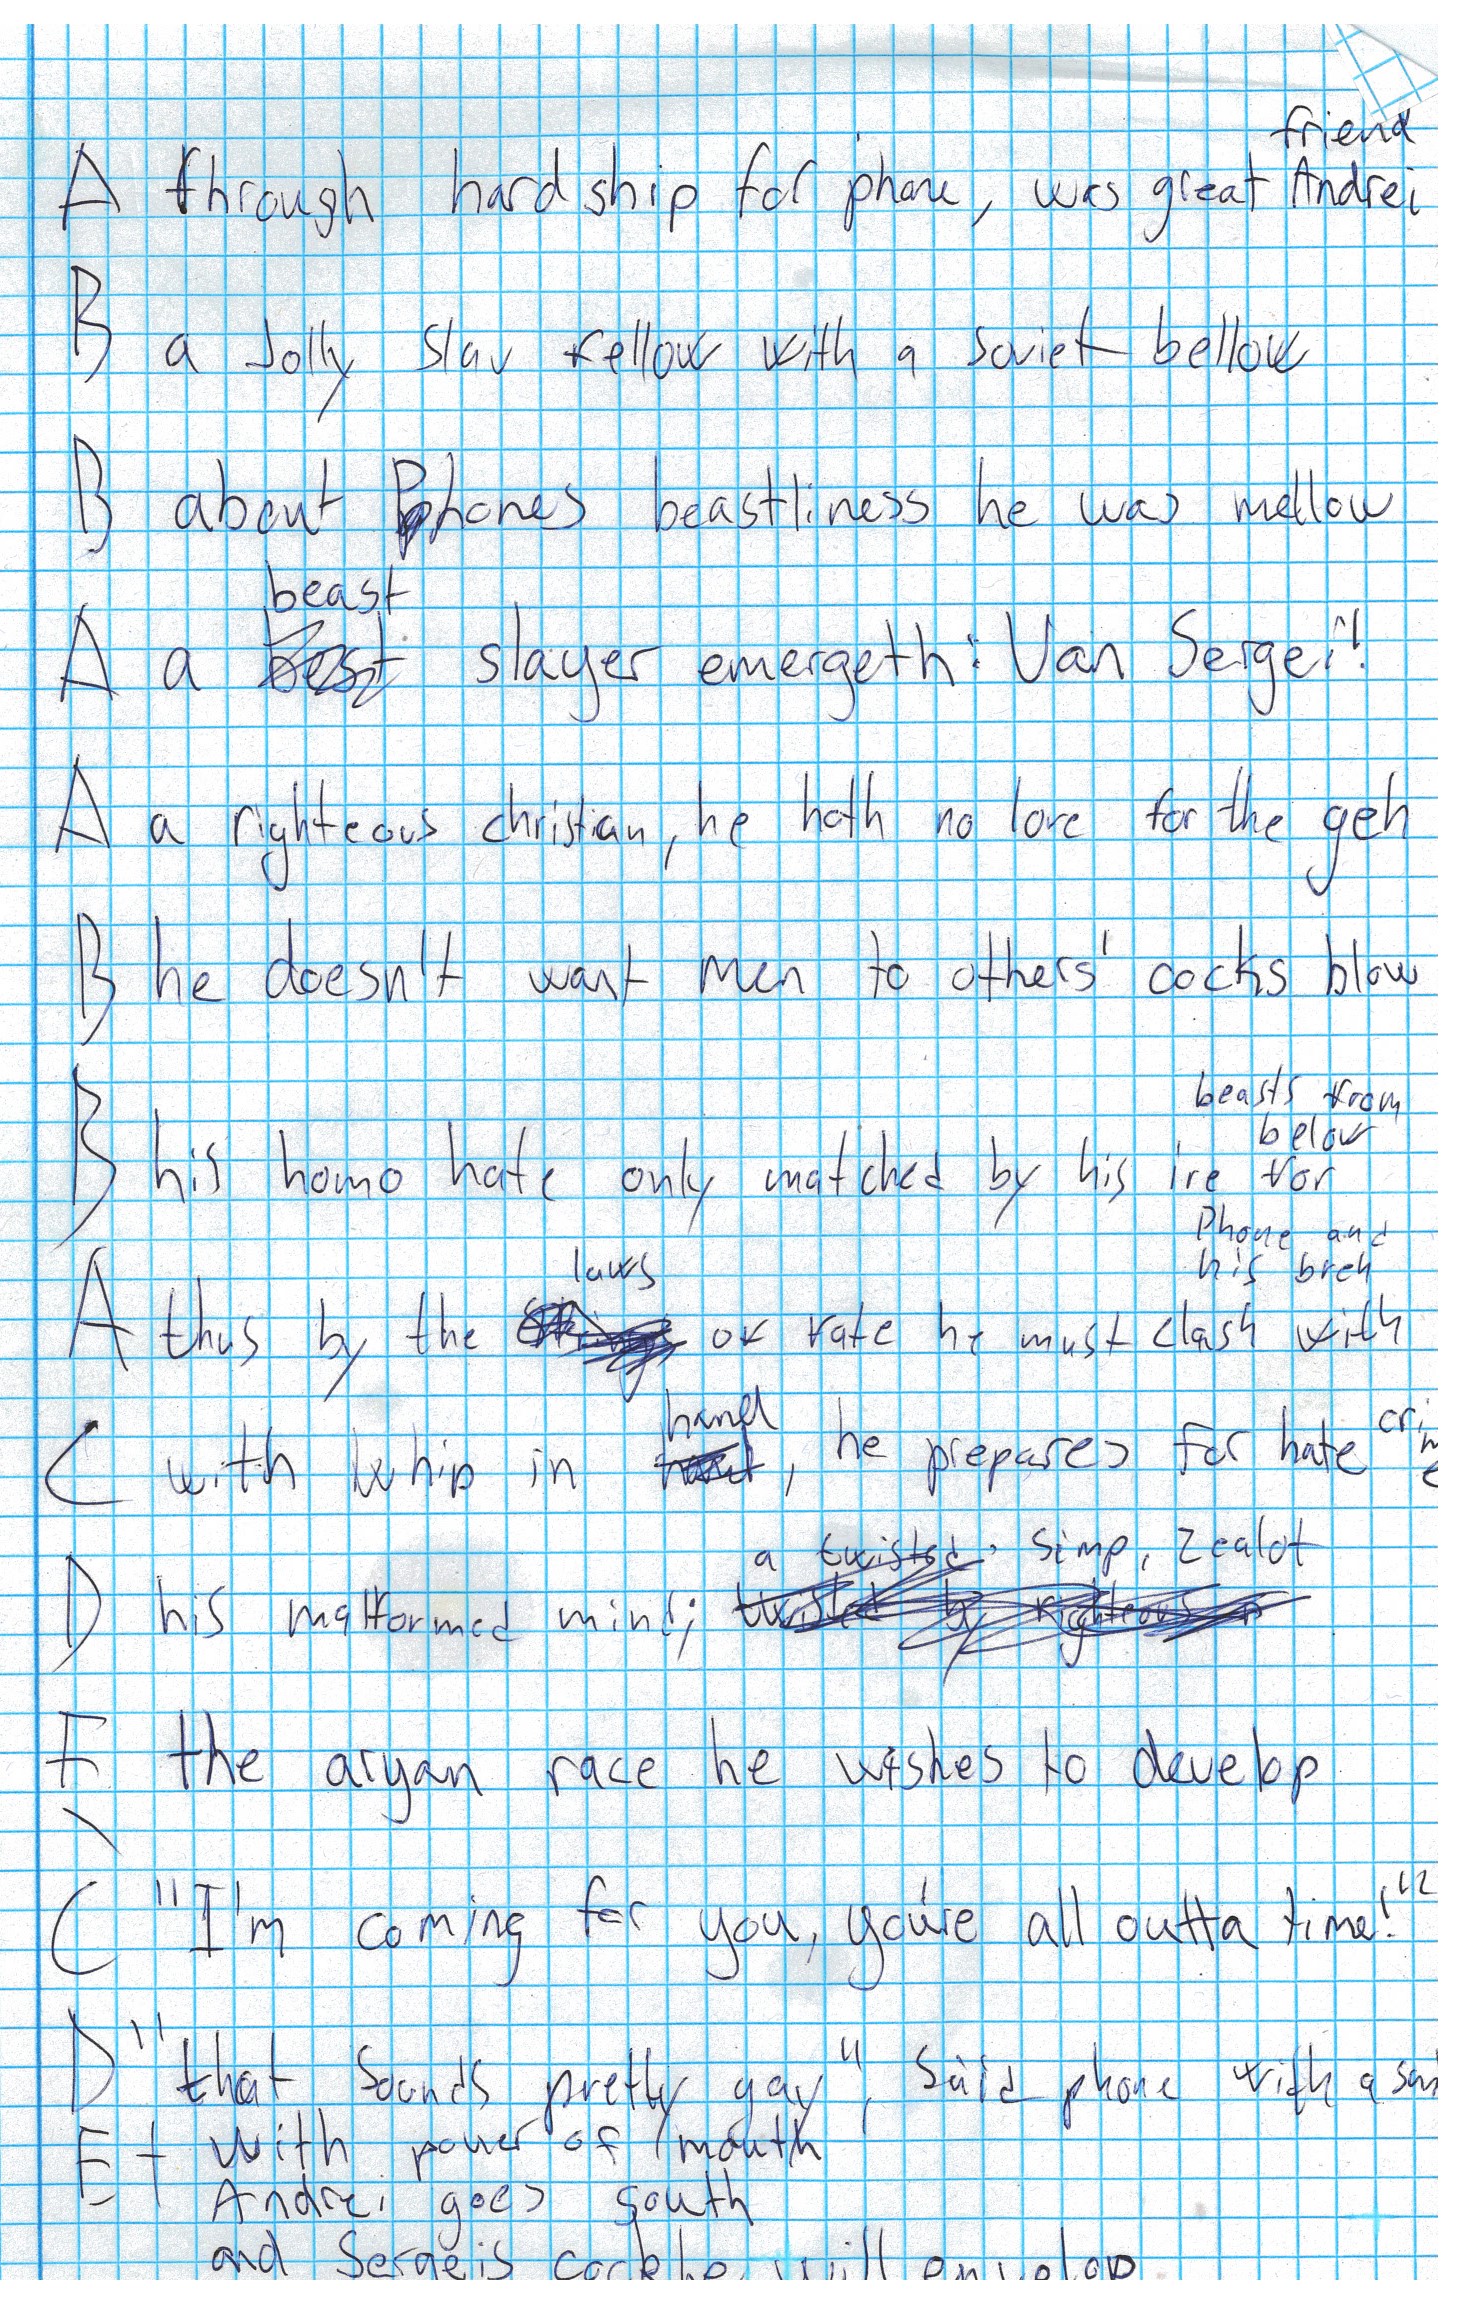 friend
A through hardship for phone, was great Andrei
B a Jolly Slav fellow with a soviet bellow
B about Phones beastliness he was mellow
beast
A a slayer emergeth: Van Sergei!
A a righteous christian, he hath no love for the geh
B he doesn't want men to others' cocks blow
beasts from
below
B his homo hate only matched by his ire for
Phone and
his breh
laws
A thus by the of fate he must clash with
hand
C with whip in , he prepares for hate crime
a simp, zealot
D his malformed mind;
E the aryan race he wishes to develop
C "I'm coming for you, you're all outta time!"
D "that sounds pretty gay", said phone with a
E + with power of mouth
Andrei goes south
and Sergeis cock he will envelop